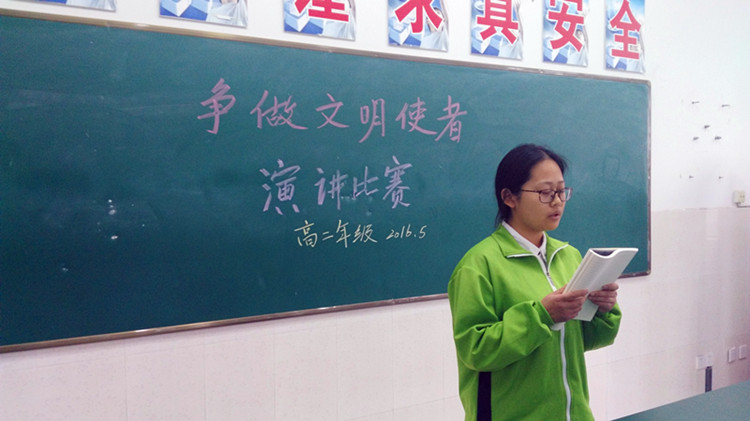 理求真安全
争做文明使者
演讲比赛
高二年级 2016.5